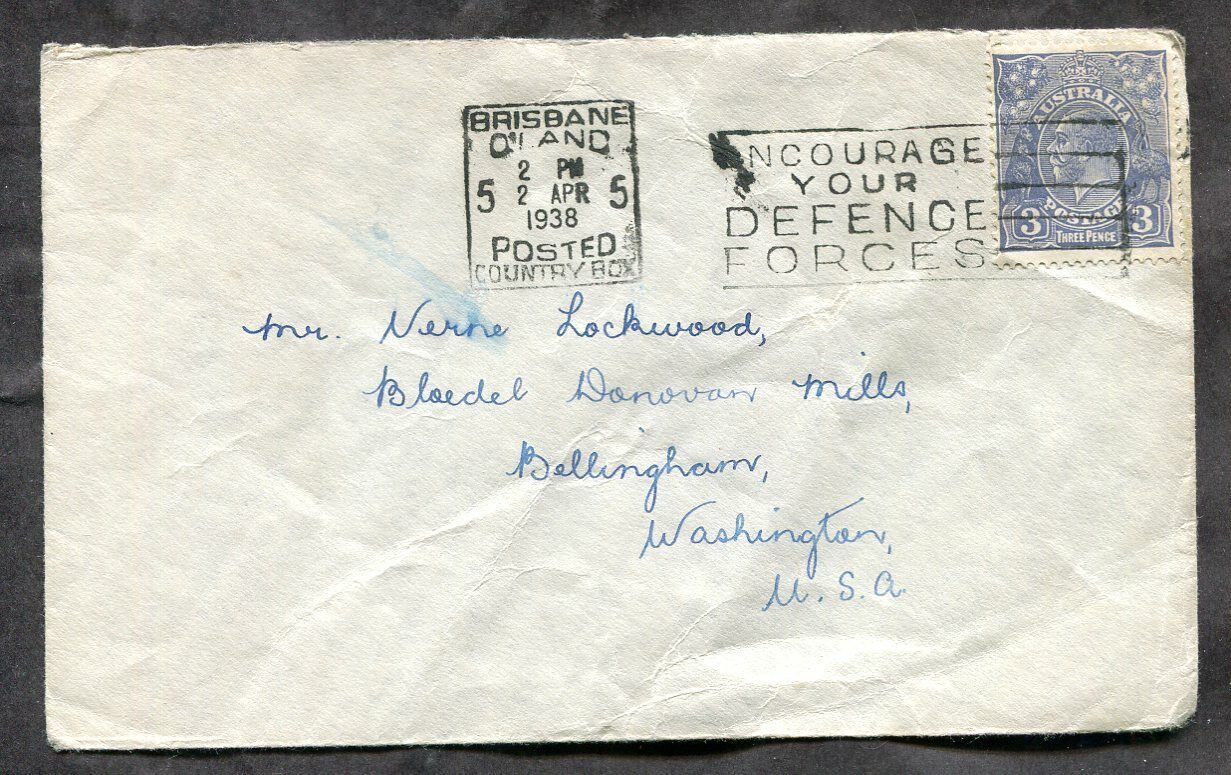 BRISBANE
Q'LAND
2 PM
5 2 APR 5
1938
POSTED
COUNTRY BOX
ENCOURAGE
YOUR
DEFENCE
FORCES
AUSTRALIA
POSTAGE
3 THREE PENCE 3
Mr. Verne Lockwood,
Bloedel Donovan Mills,
Bellingham,
Washington,
U. S. A.